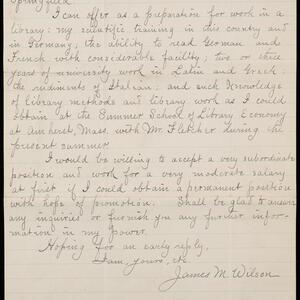 Springfield.
I can offer as a preparation for work in a
library: my scientific training in this country and
in Germany; the ability to read German and
French with considerable facility; two or three
years of university work in Latin and Greek;
the rudiments of Italian; and such knowledge
of library methods and library work as I could
obtain at the Summer School of Library Economy
at Amherst, Mass. with Mr. Fletcher during the
present summer.
I would be willing to accept a very subordinate
position and work for a very moderate salary
at first if I could obtain a permanent position
with hope of promotion. Shall be glad to answer
any inquiries or furnish you any further infor-
mation in my power.
Hoping for an early reply,
I am, yours, etc.
James M. Wilson